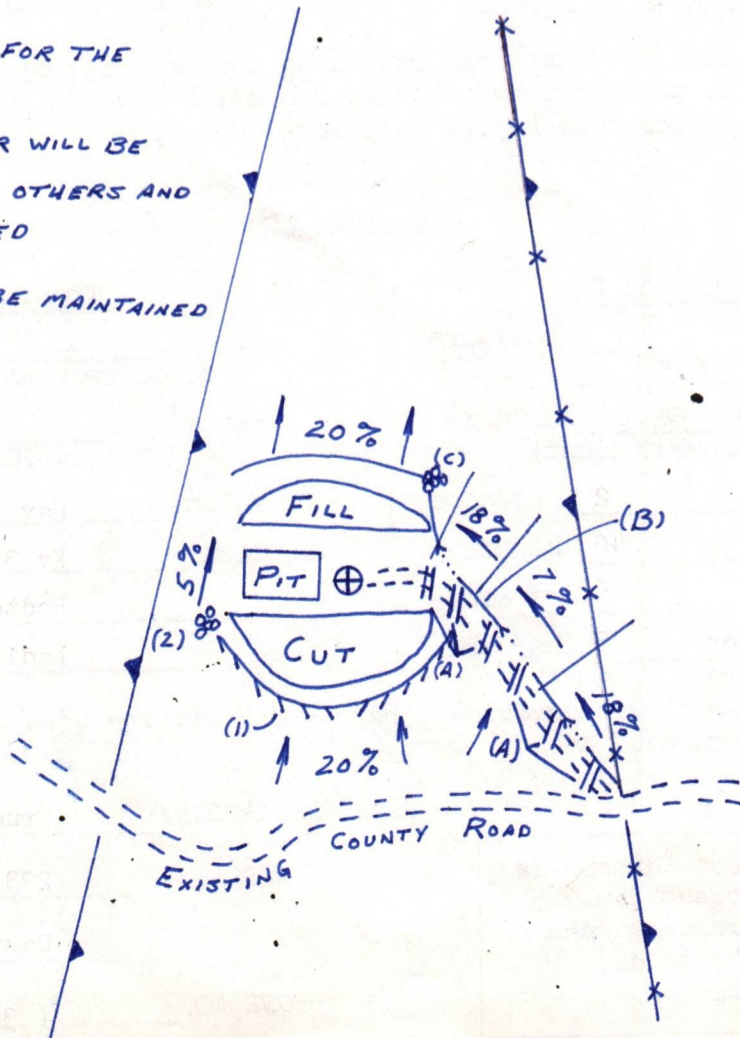 FOR THE
WILL BE
OTHERS AND
BE MAINTAINED
20%
(C)
FILL
18%
(B)
5%
PIT
7%
(2)
CUT
(A)
(1)
18%
(A)
20%
COUNTY ROAD
EXISTING